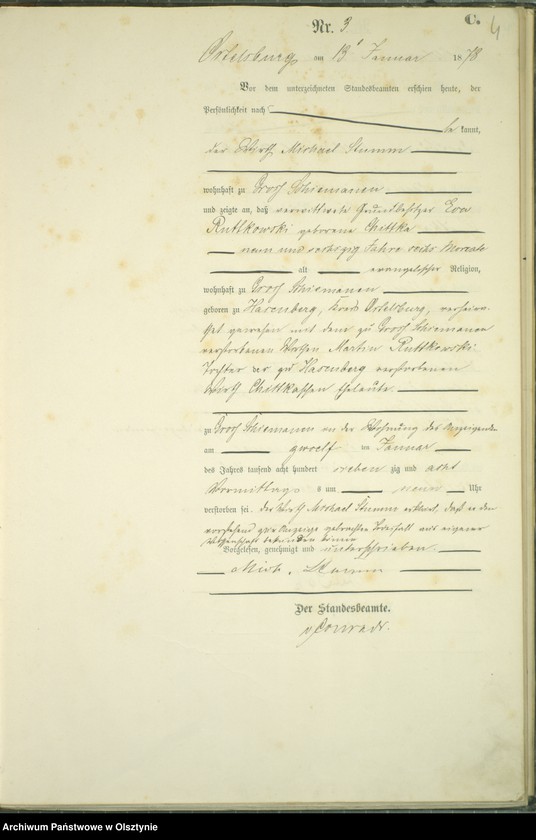 C.
4
Nr. 3
Ortelsburg am 13t Januar 1878
Vor dem unterzeichneten Standesbeamten erschien heute, der
Persönlichkeit nach
be kannt,
der Wirth Michael Stumm
wohnhaft zu Groß Schiemanen
und zeigte an, daß verwittwete Grundbesitzer Eva
Ruttkowski geborene Chittka
neun und sechszig Jahre sechs Monate
alt evangelischer Religion,
wohnhaft zu Groß Schiemanen
geboren zu Hasenberg, Kreis Ortelsburg, verheira-
thet gewesen mit dem zu Groß Schiemanen
verstorbenen Wirthen Martin Ruttkowski
Tochter der zu Hasenberg verstorbenen
Wirth Chittkaschen Eheleute.
zu Groß Schiemanen in der Wohnung des Anzeigenden
am zwoelf ten Januar
des Jahres tausend acht hundert sieben zig und acht
Vormittags um neun Uhr
verstorben sei. Der Wirth Michael Stumm erklaert, daß er den
vorstehend zur Anzeige gebrachten Todesfall aus eigener
Wissenschaft bekunden könne
Vorgelesen, genehmigt und unterschrieben.
Mich. Stumm
Der Standesbeamte.
v Conradi.
Archiwum Państwowe w Olsztynie